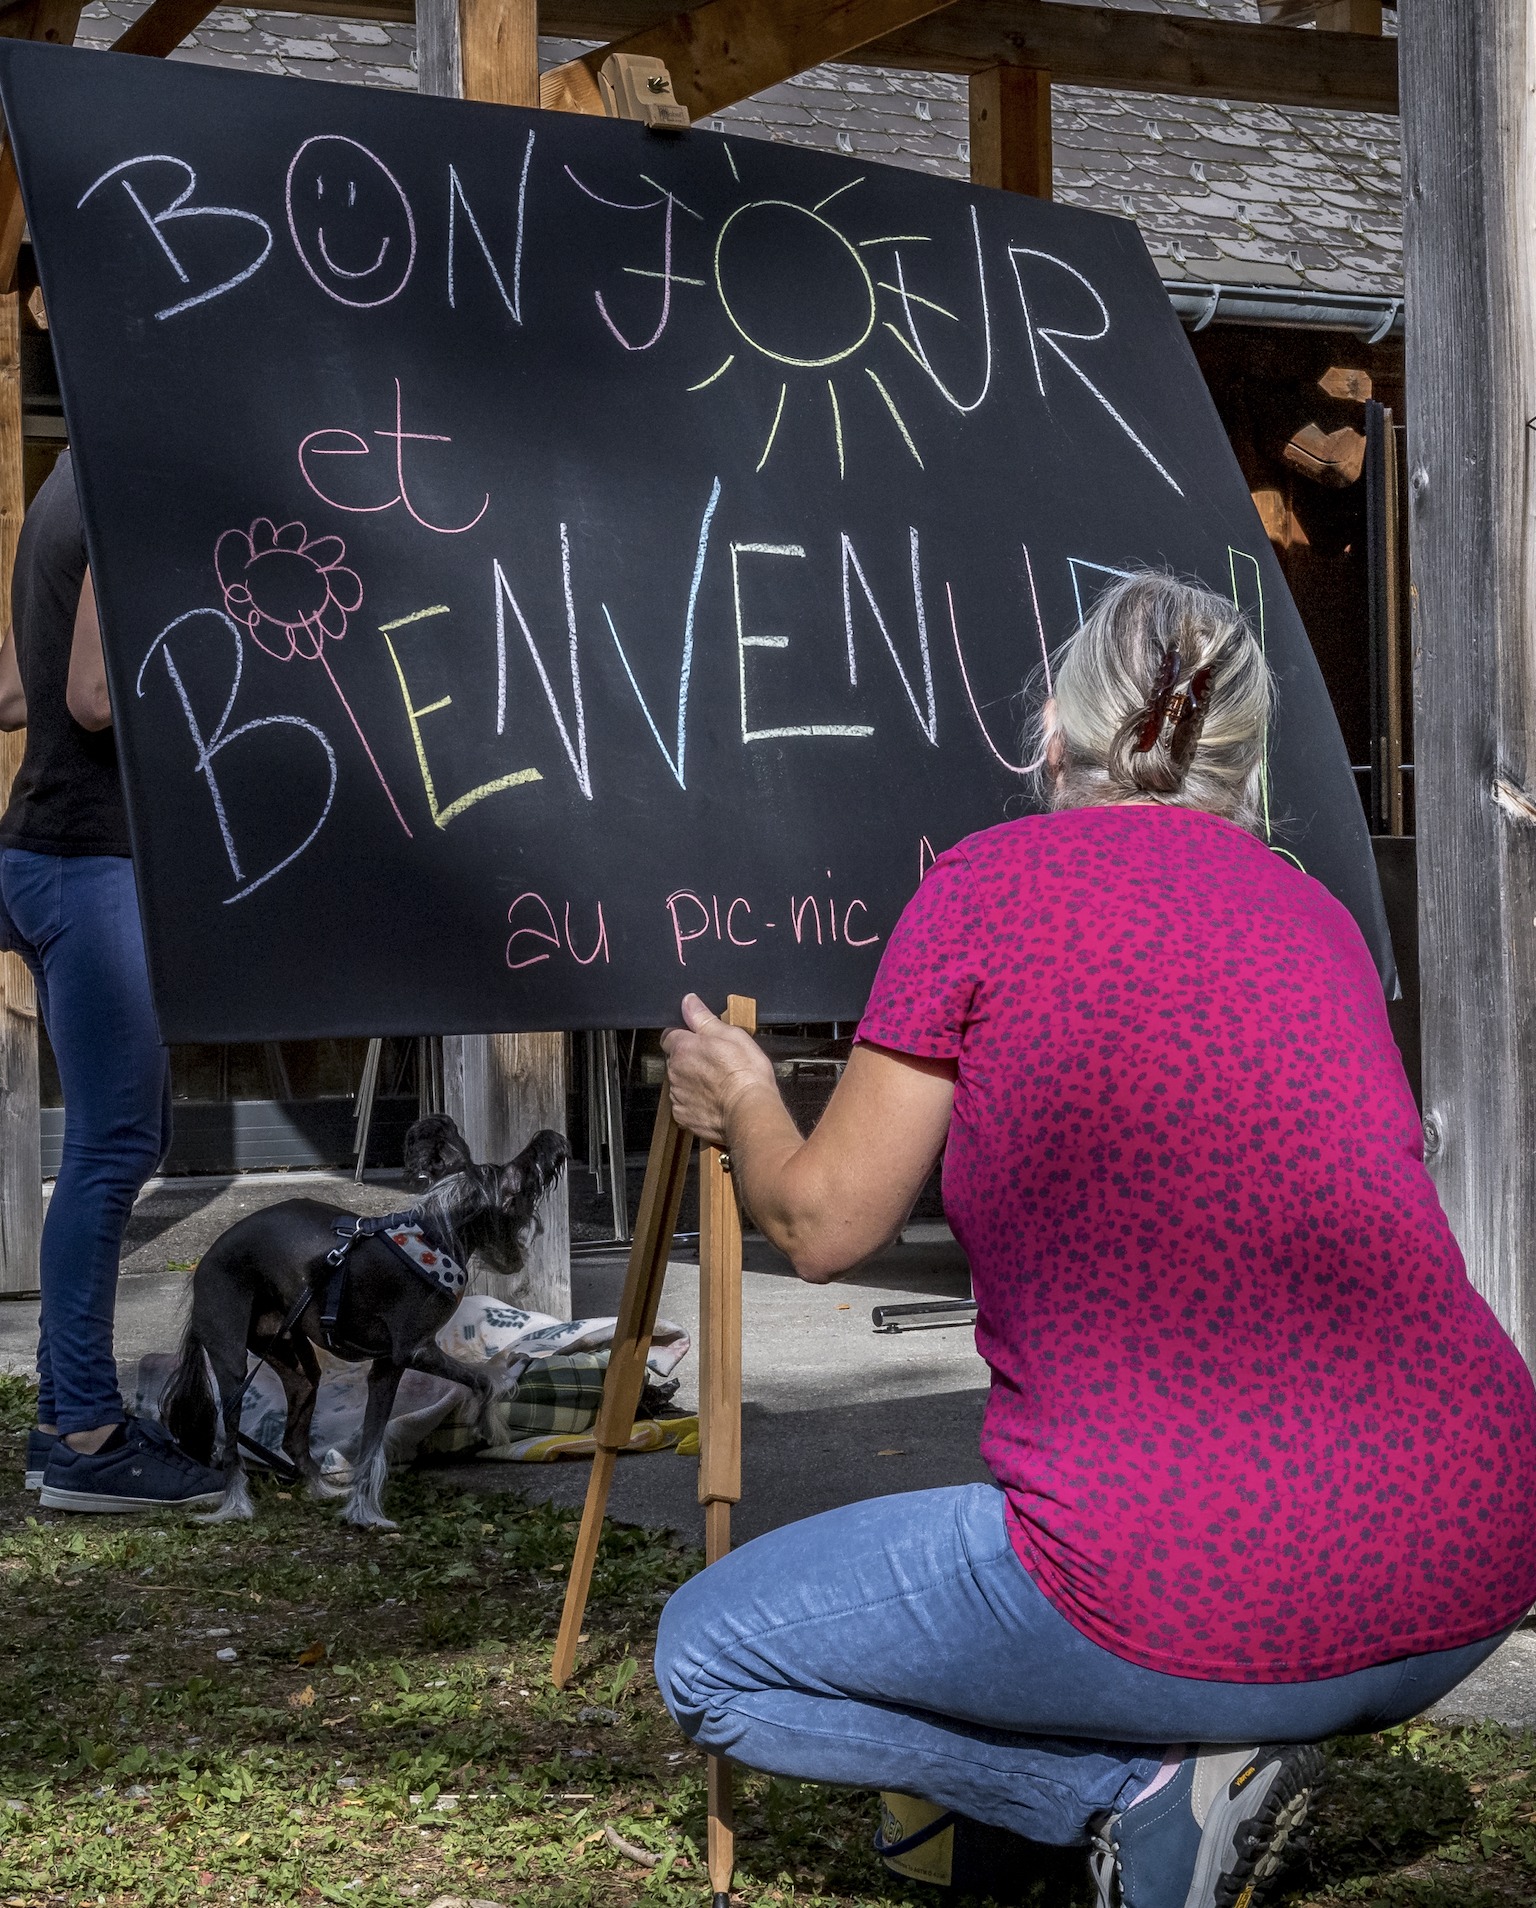 BONJOUR
et
BIENVENU
au pic-nic